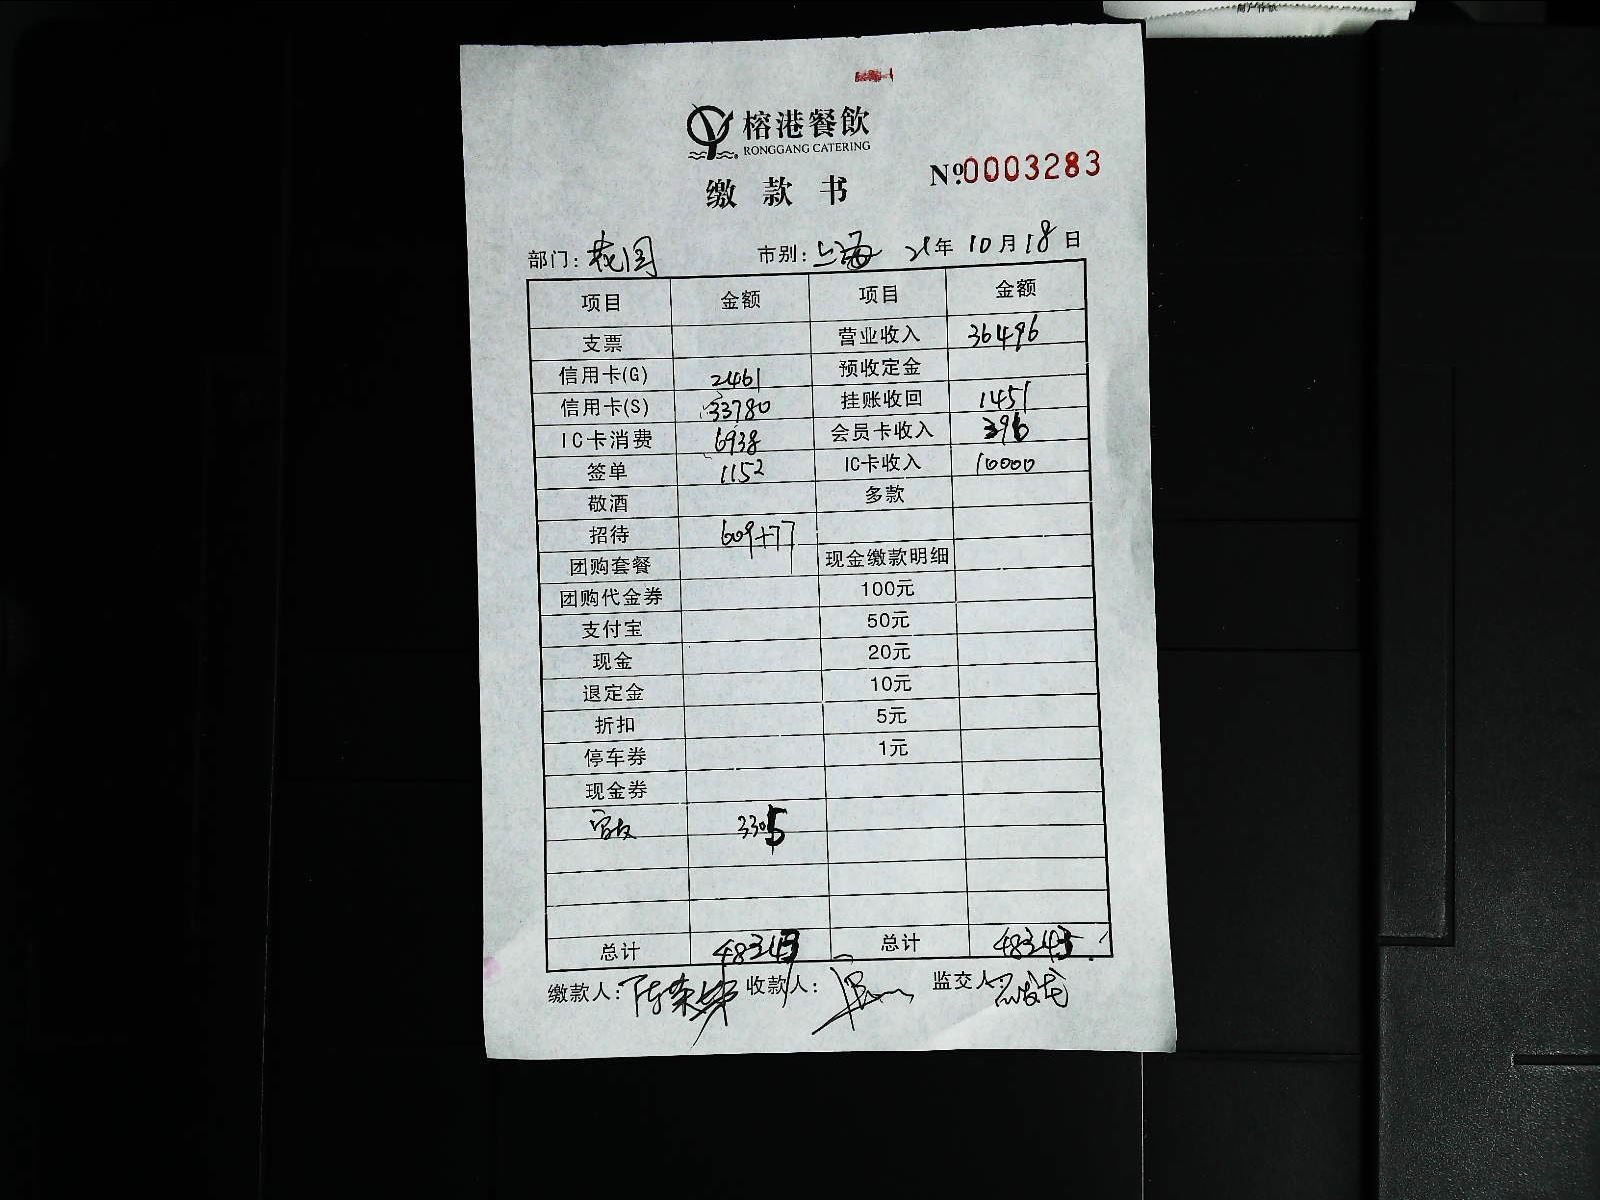 榕港餐飲
RONGGANG CATERING
缴款书
Nº.0003283
部门: 花园 市别: 上海 21年10月18日
项目 金额 项目 金额
支票 营业收入 36496
信用卡(G) 2461 预收定金
信用卡(S) 33780 挂账收回 1451
IC卡消费 6938 会员卡收入 396
签单 1152 IC卡收入 10000
敬酒 多款
招待 609+77
团购套餐 现金缴款明细
团购代金券 100元
支付宝 50元
现金 20元
退定金 10元
折扣 5元
停车券 1元
现金券
3305
总计 48343 总计 48343
缴款人: 收款人: 监交人: